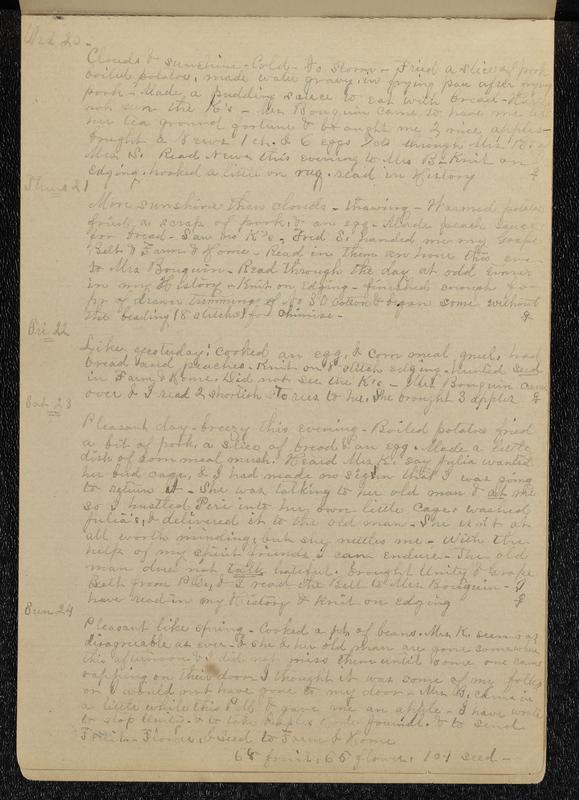 Wed 20 -
Clouds & sunshine - Cold - No storm - Fried a slice of pork
boiled potatoes, made water gravy in frying pan after frying
pork - Made a pudding sauce to eat with bread - Have
not seen the K's - Mrs Bouquin came to have me
her tea ground fortune & brought me 2 nice apples -
bought a News 1 ct. & 6 eggs through Mrs B. of
Mrs S. Read News this evening to Mrs B - Knit on
edging. hooked a little on rug. read in History &
Thurs 21
More sunshine than clouds - thawing - Warmed potatoes
fried a scrap of pork, & an egg - Made peach sauce
for bread - Saw no K's. Fred S. handed me my Grape
Belt & Farm & Home - Read in them an hour this eve -
to Mrs Bouquin - Read through the day at odd times
in my History - Knit on Edging - finished enough for
pr of drawer trimmings of No 30 cotton & began some without
the beading (8 stitches) for chimise - &
Fri 22
Like yesterday; cooked an egg, & corn meal gruel, had
bread and peaches - Knit on 8 stitch edging - hunted seed
in Farm & Home. Did not see the K's - Mrs Bouquin came
over & I read 2 shortish stories to her. She brought 3 apples &
Sat 23
Pleasant day - breezy this evening - Boiled potatoes fried
a bit of pork, a slice of bread & an egg. Made a little
dish of corn meal mush. Heard Mrs K. say Julia wanted
her bird cage, & I had made no sign that I was going
to return it - She was talking to her old man & at me
so I hustled Peri into her own little cage, washed
Julia's, & delivered it to the old man - She isn't at
all worth minding, but she nettles me - With the
help of my spirit friends I can endure - The old
man does not talk hateful. Brought Unity & Grape
Belt from P.O. & I read the Belt to Mrs Bouquin - I
have read in my History & Knit on edging &
Sun 24
Pleasant like Spring - Cooked a pt of beans. Mrs K. seems as
disagreeable as ever - & she & her old man are gone somewhere
this afternoon & I did not miss them until some one came
rapping on their door. I thought it was some of my folks
or I would not have gone to my door - Mrs B. came in
a little while this P.M & gave me an apple - I have wrote
to stop Unity - & to take Journal. & to send
Fruit - Flower, & seed to Farm & Home
68 fruit, 65 flower, 101 seed -